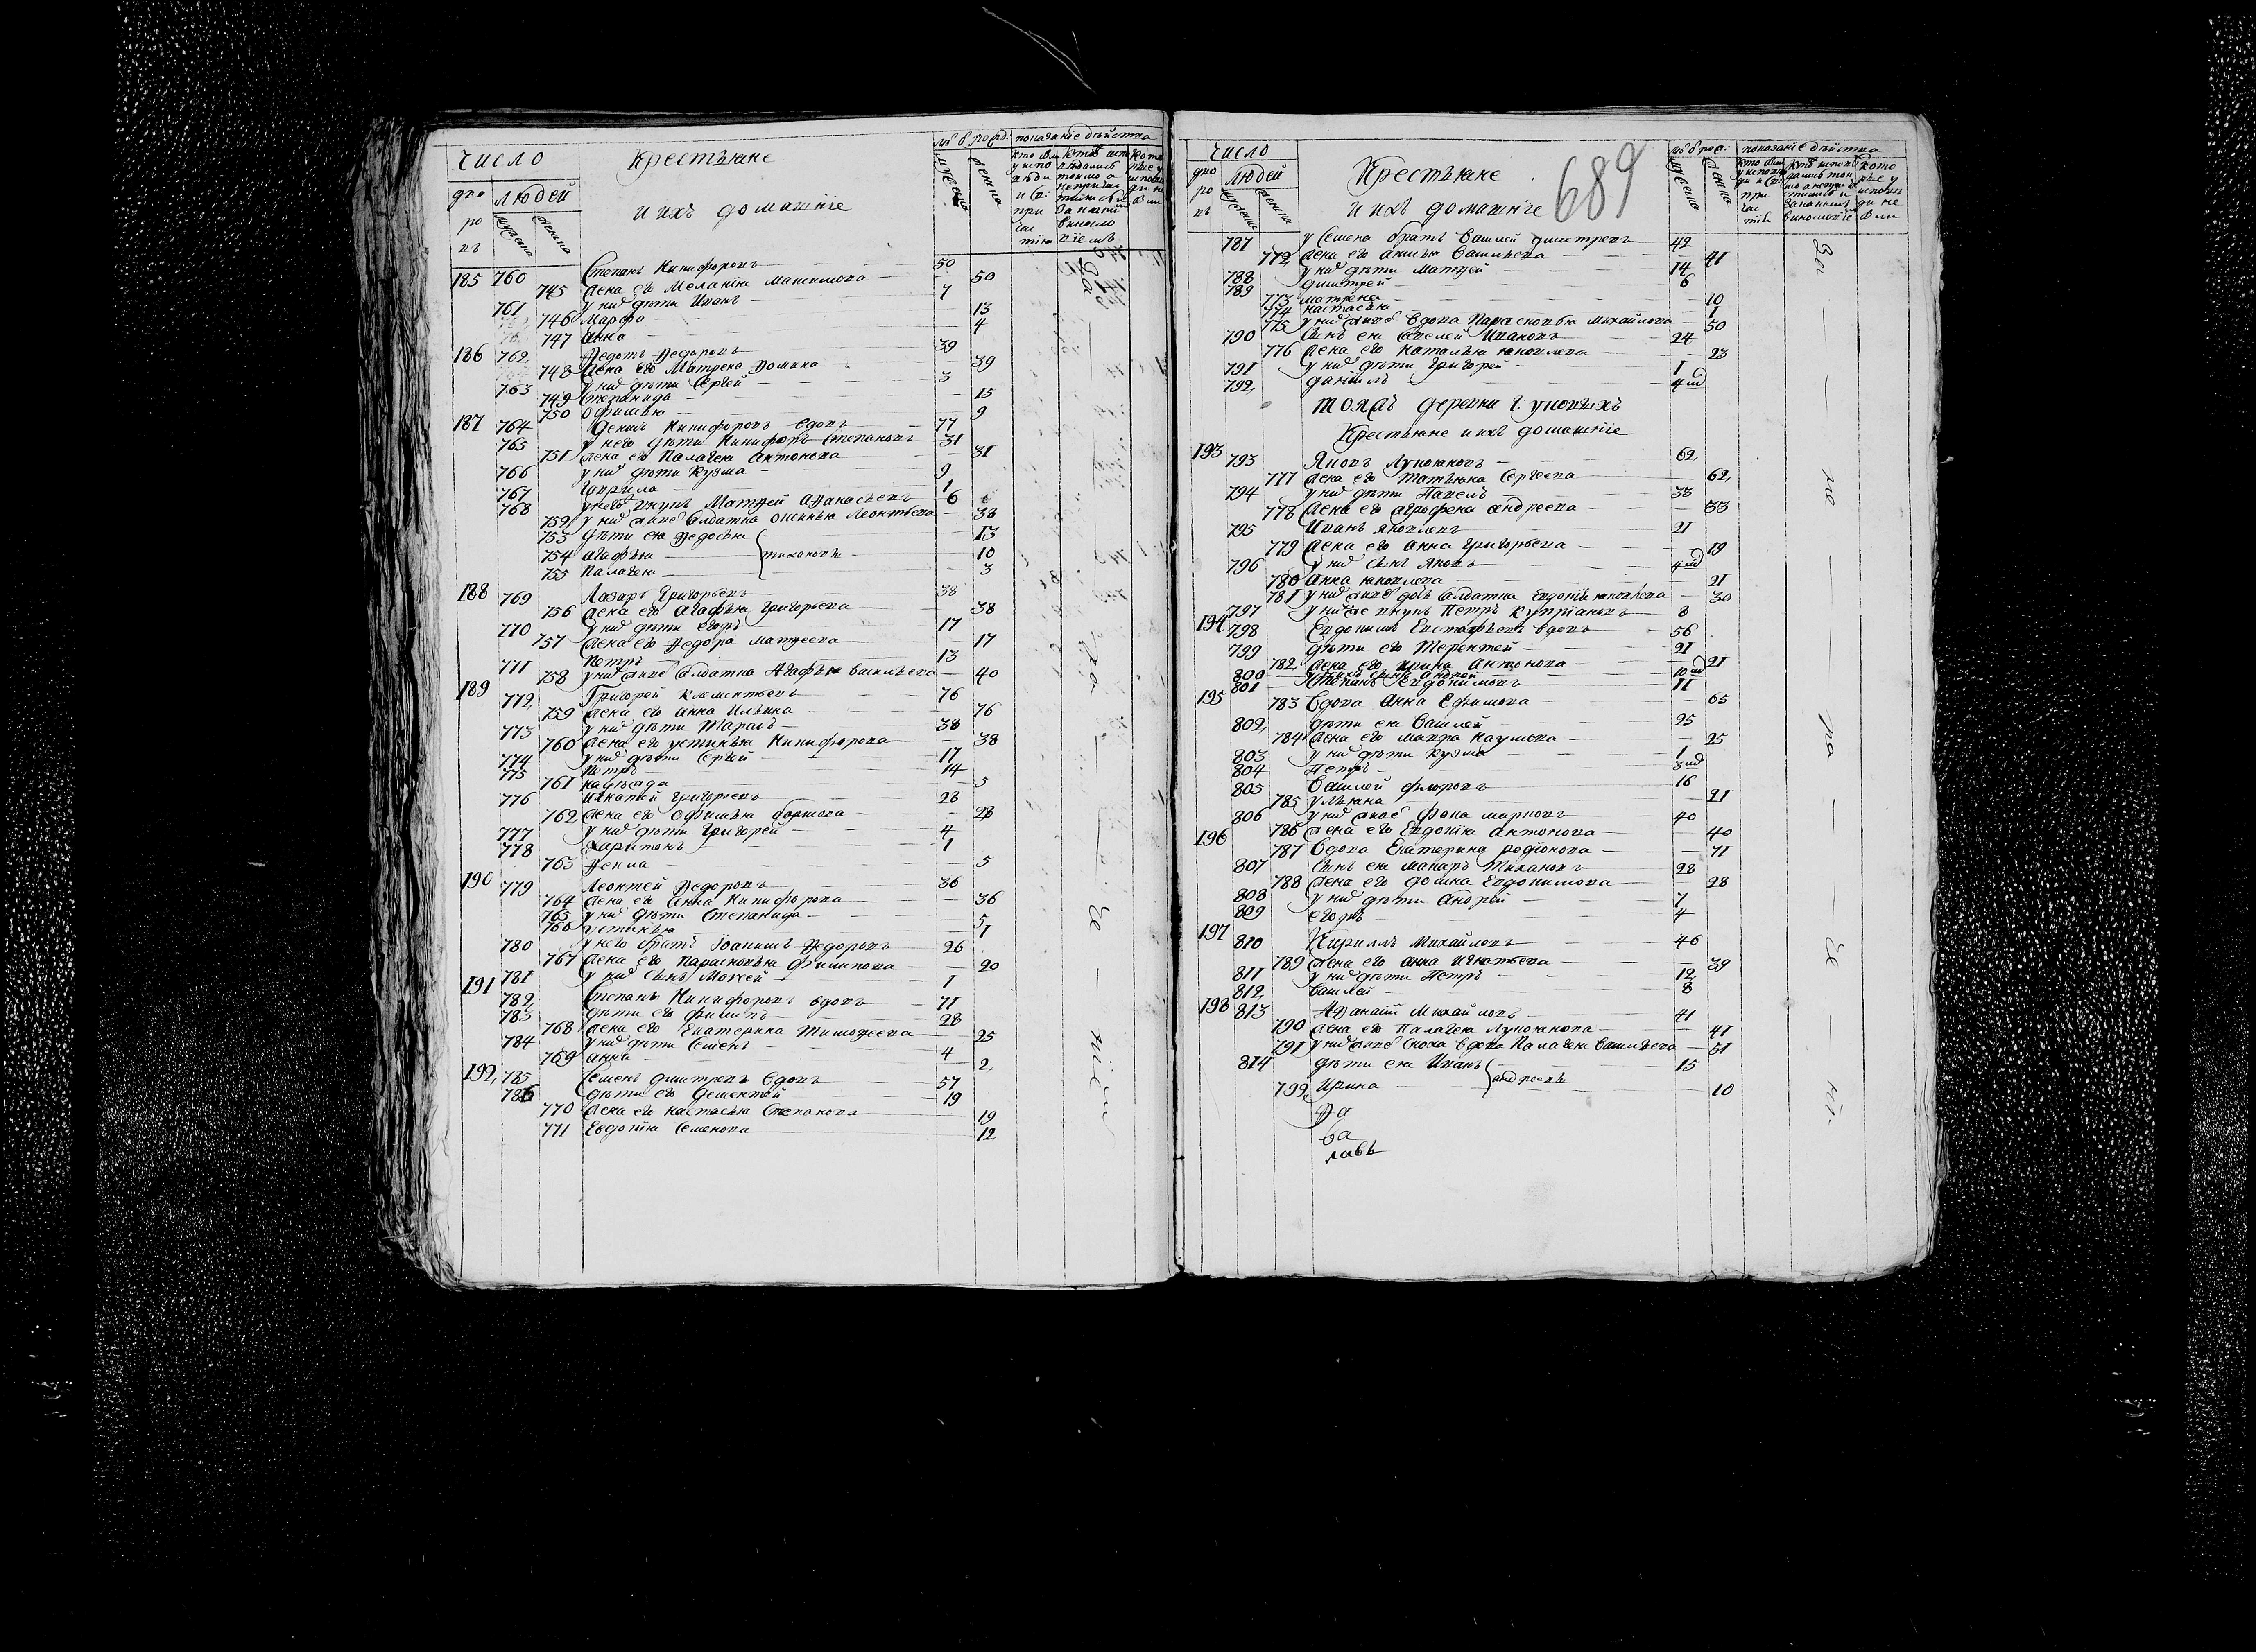 число
Крестьяне
лѣ в рожд: показание действа
дво
ро
въ
людей
мужеска
женска
и ихъ домашние
мужеска
женска
185 760 Степанъ Никифоровъ 50
745 Жена ево Мелания Максимова 50
761 у них дети Иванъ 7
746 Марфа 13
747 Анна 4
186 762 Федотъ Федоровъ 39
748 Жена его Матрена Фомина 39
763 у них дети Сергей 3
749 Степанида 15
750 Офимья 9
187 764 Денисъ Никифоровъ вдовъ 77
765 у него дети Никифоръ Степановъ 31
751 жена его Палагея Антонова 31
766 у них дети Кузма 9
767 Гаврила 1
768 у него внукъ Матфей Афанасьевъ 6
752 у них же солдатка Оксинья Леонтьева 38
753 Дети ея Федосья 13
754 Агафья тихоновы 10
755 Палагея 3
188 769 Лазарь Григорьевъ 38
756 жена его Агафья Григорьева 38
770 у них дети Егоръ 17
757 Жена его Федора Матфеева 17
771 Петръ 13
758 у них же солдатка Агафья Васильева 40
189 772 Григорей Клементьевъ 76
759 жена его Анна Ильина 76
773 у них дети Тарасъ 38
760 жена его Устинья Никифорова 38
774 у них дети Сергей 17
775 Петръ 14
761 Надежда 5
776 Игнатей Григорьевъ 28
762 жена его Офимья Борисова 28
777 у них дети Григорей 4
778 Харитонъ 1
763 Фекла 5
190 779 Леонтей Федоровъ 36
764 жена его Анна Никифорова 36
765 у них дети Степанида 5
766 Устинья 1
780 у него братъ Иоакимъ Федоровъ 26
767 Жена его Парасковья Филипова 20
191 781 у них сынъ Моисей 1
782 Степанъ Никифоровъ вдовъ 71
783 дети его Филипъ 28
768 жена его Екатерина Тимофеева 25
784 у них дети Семенъ 4
769 Анна 2
192 785 Семенъ Дмитревъ вдовъ 57
786 дети его Дементей 19
770 жена его Настасья Степанова 19
771 Евдокия Семенова 12
число
дво
ро
въ
людей
мужеска
женска
Крестьяне
и ихъ домашние
689
лѣ в рож: показание действа
мужеска
женска
787 у Семена братъ Василей Дмитревъ 42
772 жена его Анисья Васильева 41
788 у них дети Матфей 14
789 Дмитрей 6
773 Матрена 10
774 Настасья 1
775 у них же вдова Парасковья Михайлова 50
790 Сынъ ея Савелей Ивановъ 24
776 жена его Наталья Яковлева 23
791 у них дети Григорей 1
792 Данилъ 4 м
тояжъ деревни
Крестьяне и ихъ домашние
193 793 Яковъ Лукояновъ 62
777 жена его Татьяна Сергеева 62
794 у них дети Павелъ 33
778 Жена его Агрофена Андреева 33
795 Иванъ Яковлевъ 21
779 жена его Анна Григорьева 19
796 у них сынъ Яковъ 4 м
780 Анна Яковлева 21
781 у них же дочь солдатка Евдокия Яковлева 30
797 у них же внукъ Петръ Куприяновъ 8
194 798 Евдокимъ Евстафьевъ вдовъ 56
799 дети его Терентей 21
782 жена его Ирина Антонова 21
800 у них сынъ Андрей 10 м
801 Степанъ Евдокимовъ 11
195 783 Вдова Анна Ефимова 65
802 дети ея Василей 25
784 жена его Марфа Наумова 25
803 у них дети Кузма 1
804 Петръ 3 м
805 Василей Филатовъ 16
785 Ульяна 21
806 у них же Фока Марковъ 40
196 786 жена его Евдокия Антонова 40
787 Вдова Екатерина Родионова 71
807 сынъ ея Макаръ Тихановъ 28
788 жена его Домна Евдокимова 28
808 у них дети Андрей 7
809 Егоръ 4
197 810 Кирилъ Михайловъ 46
789 жена его Анна Игнатьева 39
811 у них дети Петръ 12
812 Василей 8
198 813 Афанасий Михайловъ 41
790 жена его Палагея Лукоянова 41
791 у них же сноха вдова Палагея Васильева 51
814 дети ея Иванъ 15
792 Ирина андреевы 10